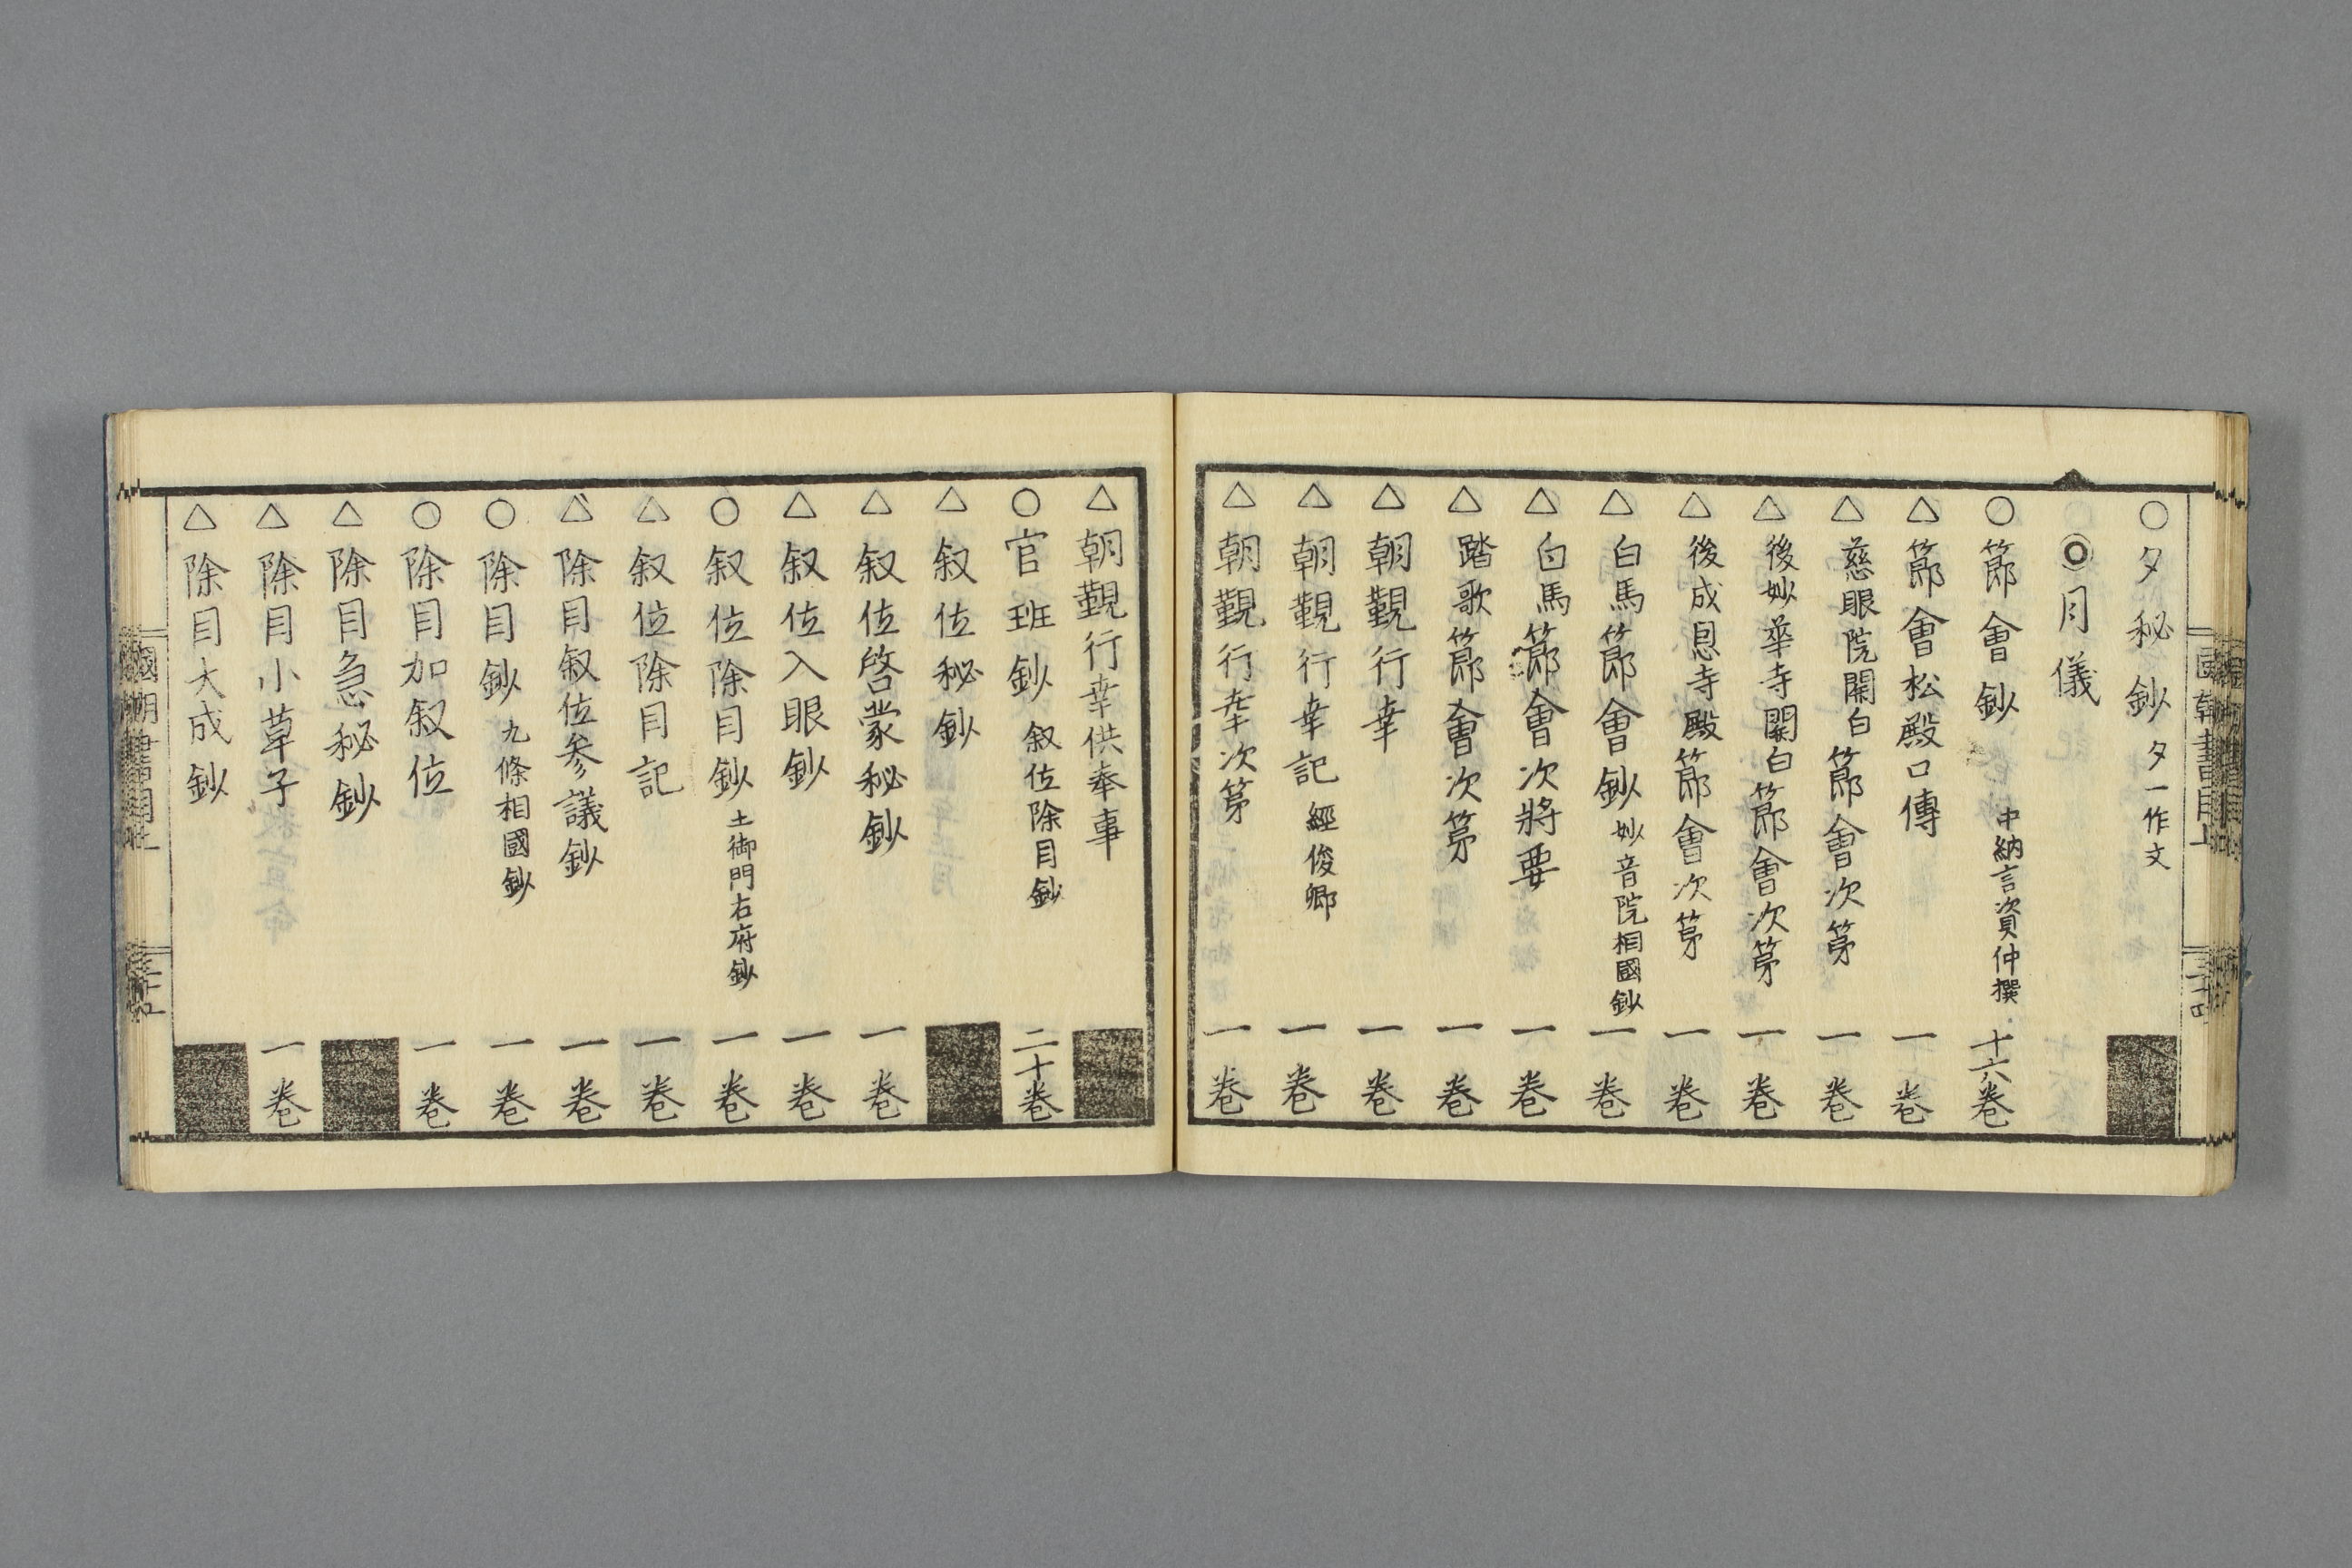 ○夕秘鈔 夕一作文
◎月儀
○節會鈔 中納言資仲撰 十六卷
△節會松殿口傳 一卷
△慈眼院關白節會次第 一卷
△後妙華寺關白節會次第 一卷
△後成恩寺殿節會次第 一卷
△白馬節會鈔 妙音院相國鈔 一卷
△白馬節會次將要 一卷
△踏歌節會次第 一卷
△朝覲行幸 一卷
△朝覲行幸記 經俊卿 一卷
△朝覲行幸次第 一卷
△朝覲行幸供奉事
○官班鈔 叙位除目鈔 二十卷
△叙位秘鈔
△叙位啓蒙秘鈔 一卷
△叙位入眼鈔 一卷
○叙位除目鈔 土御門右府鈔 一卷
△叙位除目記 一卷
△除目叙位参議鈔 一卷
○除目鈔 九條相國鈔 一卷
○除目加叙位 一卷
△除目急秘鈔
△除目小草子 一卷
△除目大成鈔